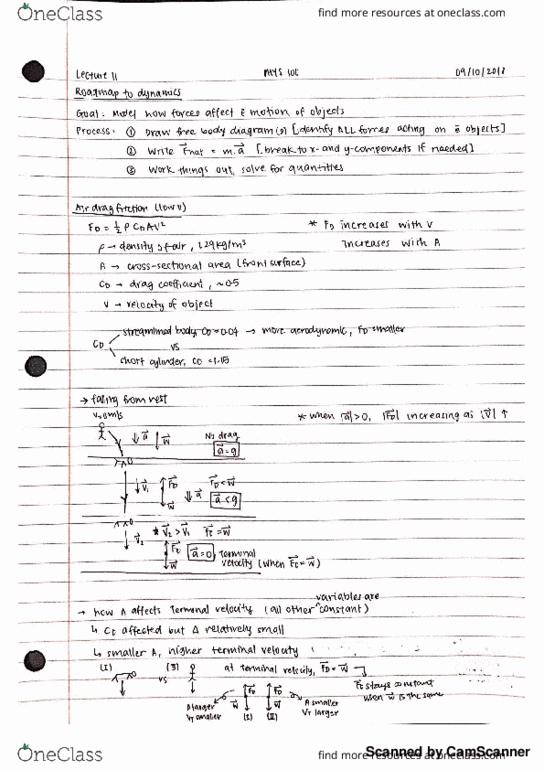 OneClass
find more resources at oneclass.com
Lecture 11 PHYS 10C 09/10/2018
Roadmap to dynamics
Goal: Model how forces affect motion of objects
Process: ① Draw free body diagram(s) [identify ALL forces acting on objects]
② Write F⃗net = m.a⃗ [break to x- and y-components if needed]
③ Work things out, solve for quantities
Air drag friction (low v)
FD = ½ ρ CD A V² * FD increases with v
ρ → density of air, 1.29 kg/m³ increases with A
A → cross-sectional area (front surface)
CD → drag coefficient, ~0.5
V → velocity of object
CD streamlined body CD ≈ 0.04 → more aerodynamic, FD smaller
vs
short cylinder, CD = 1.15
→ falling from rest
v=0m/s * when |a⃗|>0, |F⃗D| increasing as |v⃗| ↑
↓a⃗ ↓w⃗ No drag
a⃗=g
↓v⃗1 F⃗D w⃗ ↓a⃗ F⃗D<w⃗
a⃗<g
↓v⃗2 * v⃗2 > v⃗1 F⃗f = w⃗
F⃗f w⃗ a⃗=0, terminal velocity (when F⃗f = w⃗)
→ how A affects terminal velocity (all other ^variables are constant)
↳ CD affected but Δ relatively small
↳ smaller A, higher terminal velocity
(I) vs (II) at terminal velocity, F⃗D = w⃗
F⃗f stays constant when w⃗ is the same
A larger VT smaller w⃗ F⃗D (I) F⃗D w⃗ (II) A smaller VT larger
Scanned by CamScanner
OneClass
find more resources at oneclass.com